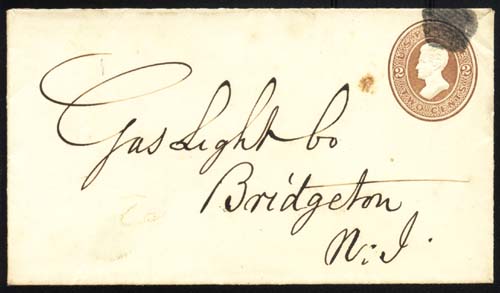 U.S. POSTAGE
2 2
TWO CENTS
Gas Light Co
Bridgeton
N. J.